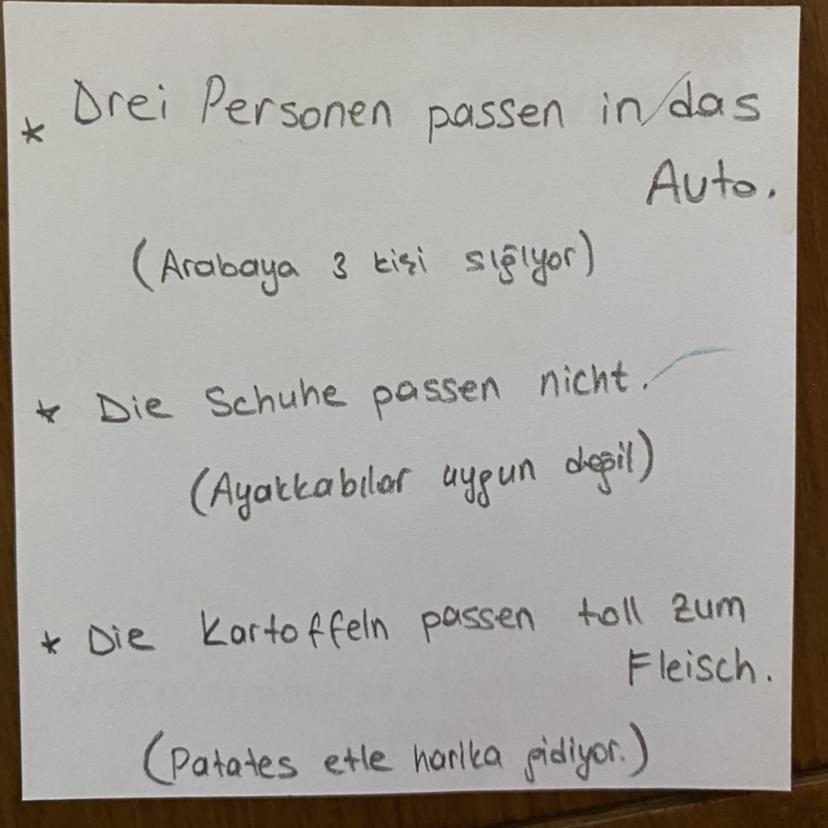 * Drei Personen passen in das
Auto.
(Arabaya 3 kişi sığıyor)
* Die Schuhe passen nicht.
(Ayakkabılar uygun değil)
* Die Kartoffeln passen toll zum
Fleisch.
(Patates etle harika gidiyor.)